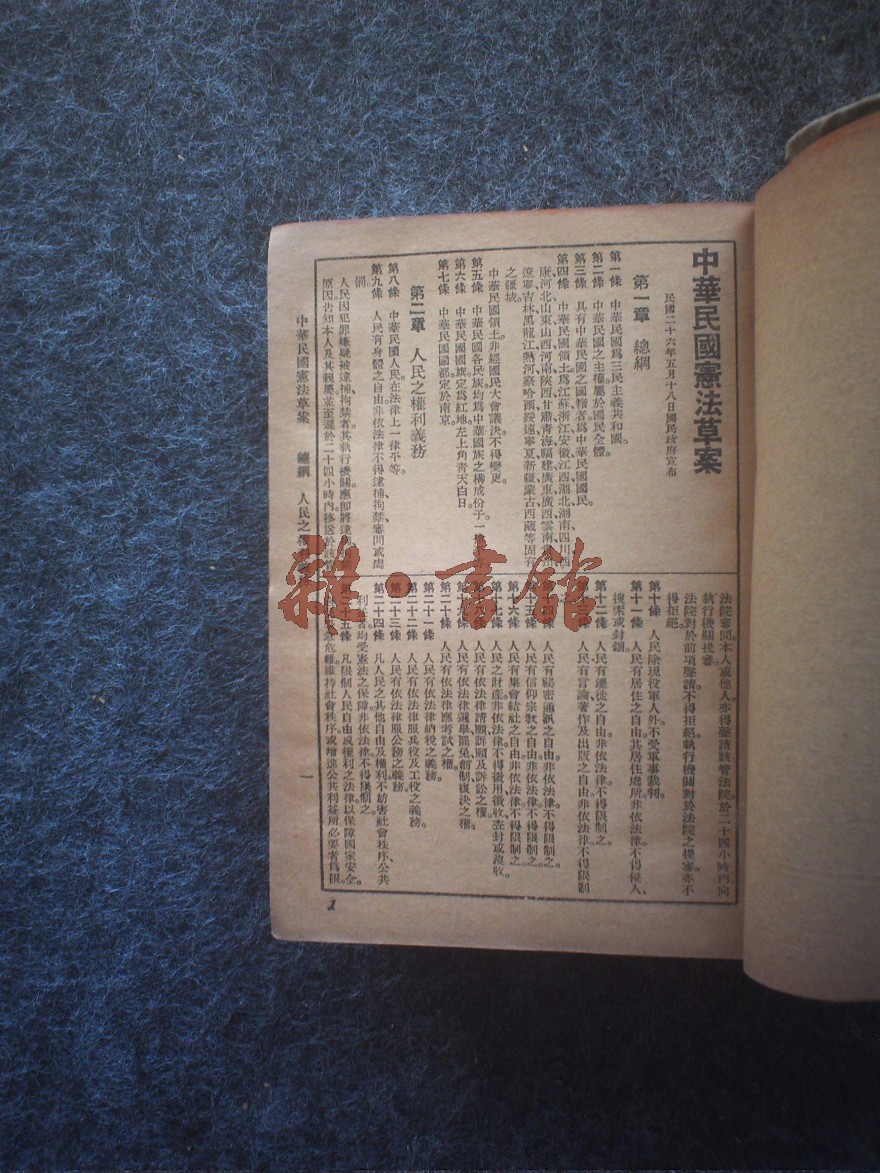 中華民國憲法草案
民國二十六年五月十八日國民政府宣布
第一章 總綱
第一條 中華民國為三民主義共和國。
第二條 中華民國之主權屬於國民全體。
第三條 具有中華民國之國籍者為中華民國國民。
第四條 中華民國領土為江蘇浙江安徽江西湖北湖南四川西
康河北山東山西河南陝西甘肅青海福建廣東廣西雲南
遼寧吉林黑龍江熱河察哈爾綏遠寧夏新疆蒙古西藏等固有
之疆域。
中華民國領土非經國民大會議決不得變更。
第五條 中華民國各民族均為中華國族之構成份子一律
第六條 中華民國國旗定為紅地左上角青天白日。
第七條 中華民國國都定於南京。
第二章 人民之權利義務
第八條 中華民國人民在法律上一律平等。
第九條 人民有身體之自由非依法律不得逮捕拘禁審問或處
罰。
人民因犯罪嫌疑被逮捕拘禁者其執行機關應即將逮捕
原因告知本人及其親屬並至遲於二十四小時內移送於該管
法院審問本人或他人亦得聲請該管法院於二十四小時內向
執行機關提審。
法院對於前項聲請不得拒絕執行機關對於法院之提審亦不
得拒絕。
第十條 人民除現役軍人外不受軍事裁判。
第十一條 人民有居住之自由其居住處所非依法律不得侵入、
搜索或封錮。
第十二條 人民有遷徙之自由非依法律不得限制之。
第十三條 人民有言論著作及出版之自由非依法律不得限制
第十四條 人民有秘密通訊之自由非依法律不得限制之。
第十五條 人民有信仰宗教之自由非依法律不得限制之。
第十六條 人民有集會結社之自由非依法律不得限制之。
第十七條 人民之財產非依法律不得徵用徵收查封或沒收。
第十八條 人民有依法律請願訴願及訴訟之權。
第十九條 人民有依法律選舉罷免創制複決之權。
第二十條 人民有依法律應考試之權。
第二十一條 人民有依法律納稅之義務。
第二十二條 人民有依法律服兵役及工役之義務。
第二十三條 人民有依法律服公務之義務。
第二十四條 凡人民之其他自由及權利不妨害社會秩序、公共
利益者均受憲法之保障非依法律不得限制之。
第二十五條 凡限制人民自由或權利之法律以保障國家安全、
危難維持社會秩序或增進公共利益所必要者為限。
中華民國憲法草案 總綱 人民之權
一
1
雜·書館